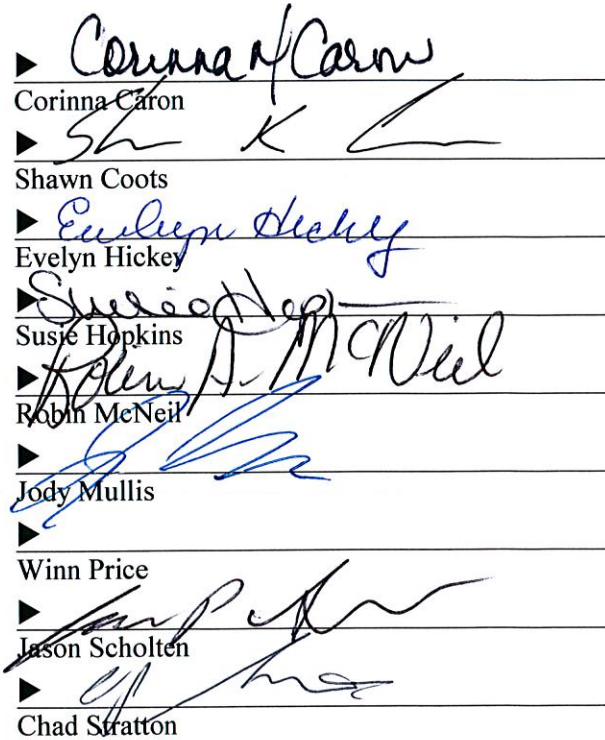 Corinna M Caron
Corinna Caron
Shawn Coots
Evelyn Hickey
Evelyn Hickey
Susie Hopkins
Robin A. McNeil
Robin McNeil
Jody Mullis
Winn Price
Jason Scholten
Chad Stratton